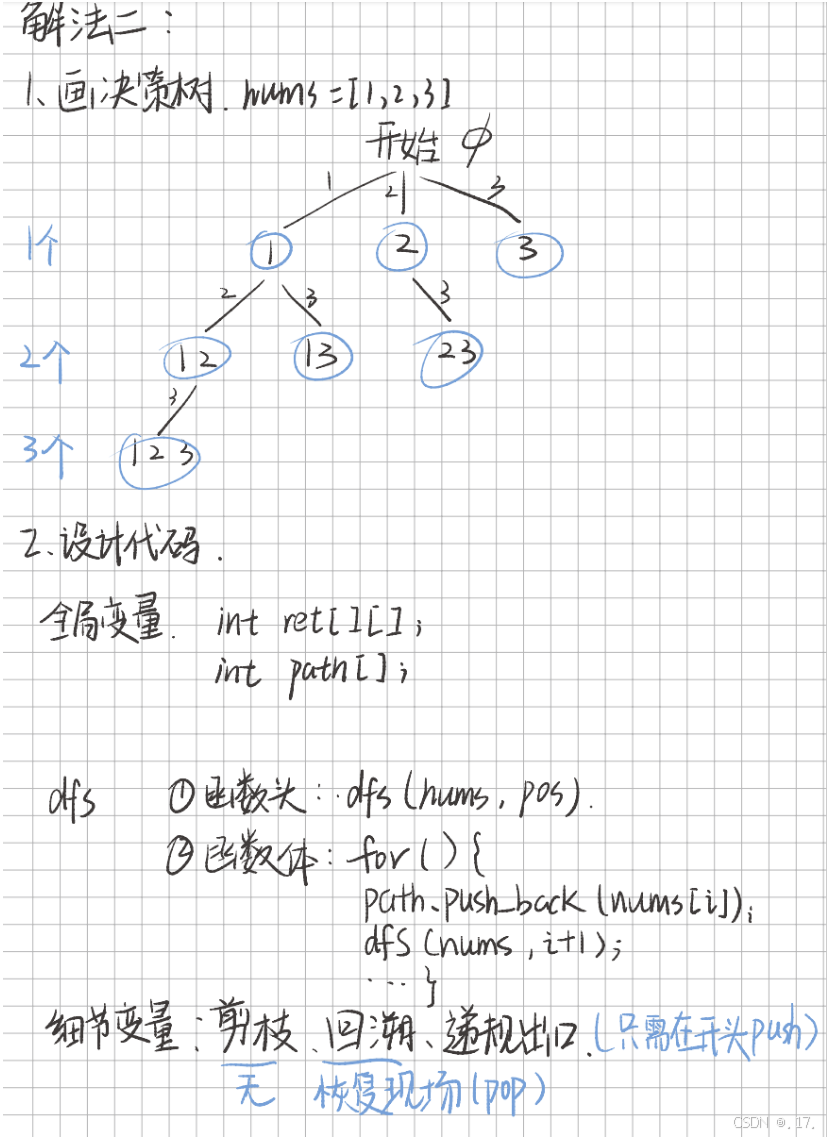 解法二：
1、画决策树. nums = [1,2,3]
开始 ∅
1 2 3
1个 1 2 3
2 3 3
2个 12 13 23
3
3个 123
2、设计代码.
全局变量. int ret[][];
int path[];
dfs ①函数头：dfs(nums, pos).
②函数体：for(){
path.push_back(nums[i]);
dfs(nums, i+1);
... }
细节变量：剪枝、回溯、递规出口.(只需在开头push)
无 恢复现场(pop)
CSDN @.17.